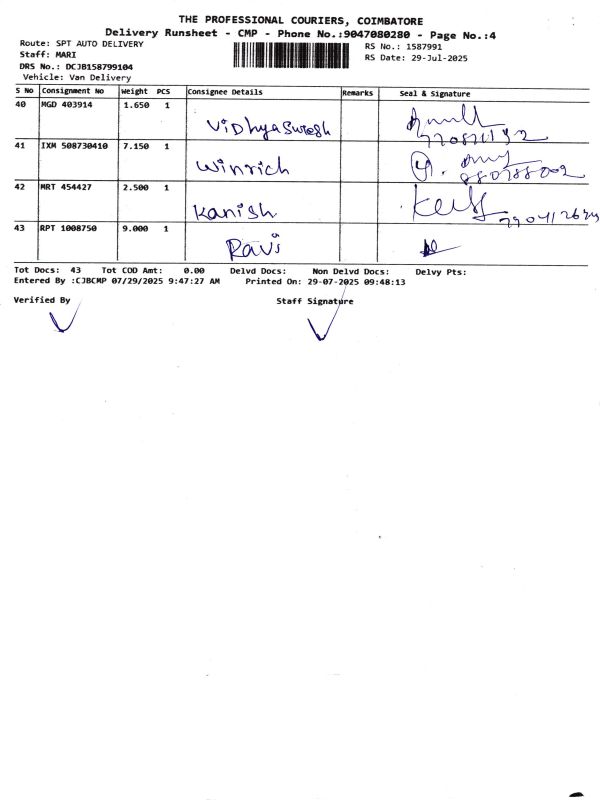 THE PROFESSIONAL COURIERS, COIMBATORE
Delivery Runsheet - CMP - Phone No.:9047080280 - Page No.:4
Route: SPT AUTO DELIVERY
RS No.: 1587991
Staff: MARI
RS Date: 29-Jul-2025
DRS No.: DCJB158799104
Vehicle: Van Delivery
S No Consignment No Weight PCS Consignee Details Remarks Seal & Signature
40 MGD 403914 1.650 1 Vidhya Suresh
41 IXM 508730410 7.150 1 Winrich
42 MRT 454427 2.500 1 Kanish
43 RPT 1008750 9.000 1 Ravi
Tot Docs: 43 Tot COD Amt: 0.00 Delvd Docs: Non Delvd Docs: Delvy Pts:
Entered By :CJBCMP 07/29/2025 9:47:27 AM Printed On: 29-07-2025 09:48:13
Verified By Staff Signature